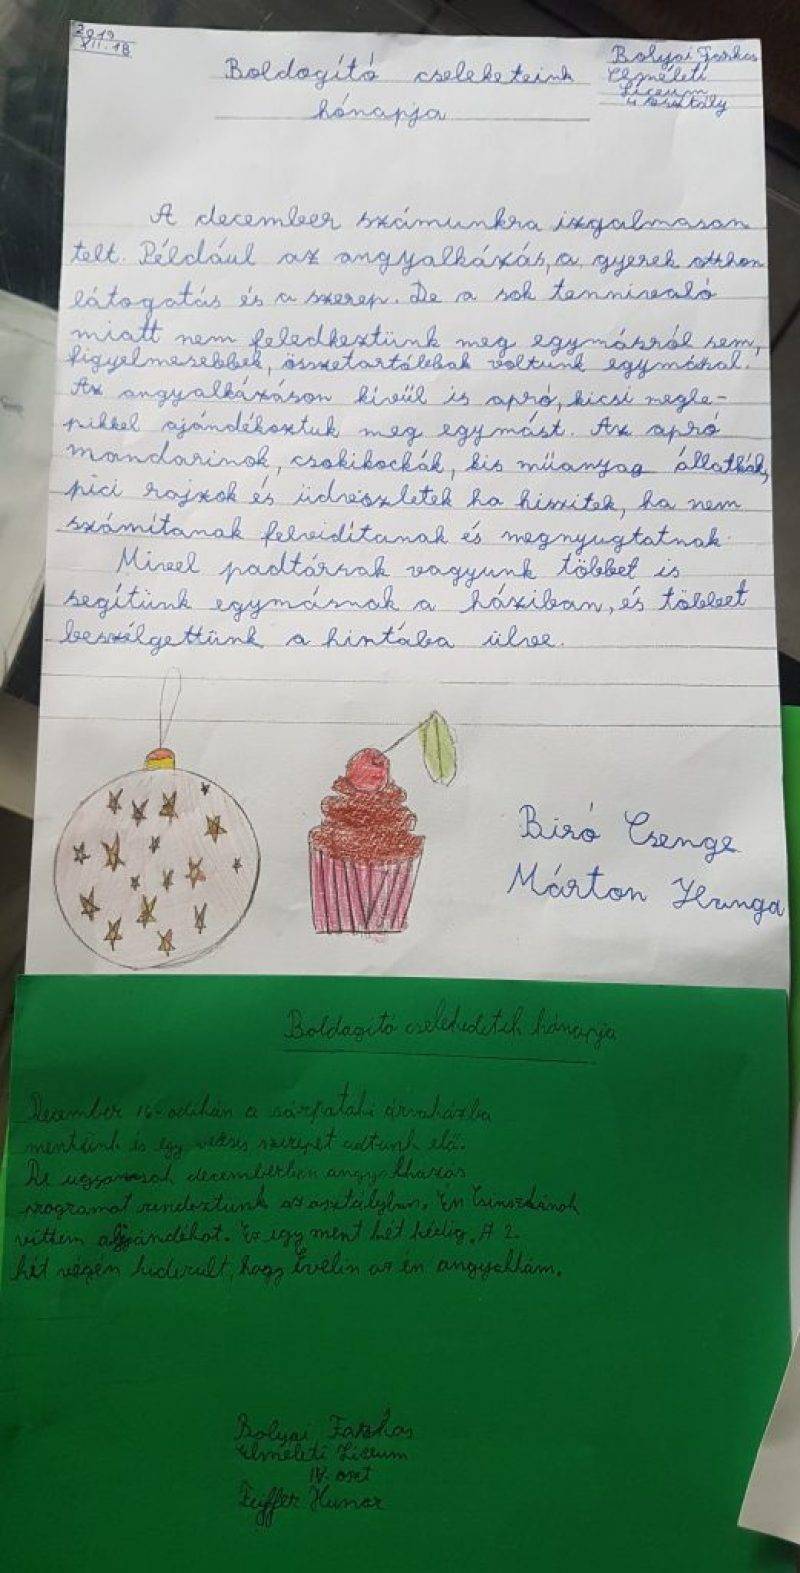 2019
XII.18
Bolyai Farkas
Elméleti
Líceum
4 osztály
Boldogító cseleketeink
hónapja
A december számunkra izgalmasan
telt. Például az angyalkázás, a gyerek otthon
látogatás és a szerep. De a sok tennivaló
miatt nem feledkeztünk meg egymásról sem,
figyelmesebbek, összetartóbbak voltunk egymással.
Az angyalkázáson kívül is apró, kicsi megle-
pikkel ajándékoztuk meg egymást. Az apró
mandarinok, csokikockák, kis műanyag állatkák,
pici rajzok és üdvözletek ha hiszitek, ha nem
számítanak felvidítanak és megnyugtatnak.
Mivel padtársak vagyunk többet is
segítünk egymásnak a háziban, és többet
beszélgettünk a hintába ülve.
Biró Csenge
Márton Hunga
Boldogító cselekedetek hónapja
December 16-odikán a sárpataki árvaházba
mentünk és egy verses szerepet adtunk elő.
De ugyancsak decemberben angyalkázás
programot rendeztünk az osztályban. Én
vittem ajándékot. Ez így ment két hétig. A 2.
hét végén kiderült, hogy Evelin az én angyalkám.
Bolyai Farkas
Elméleti Líceum
IV. oszt
Hunor